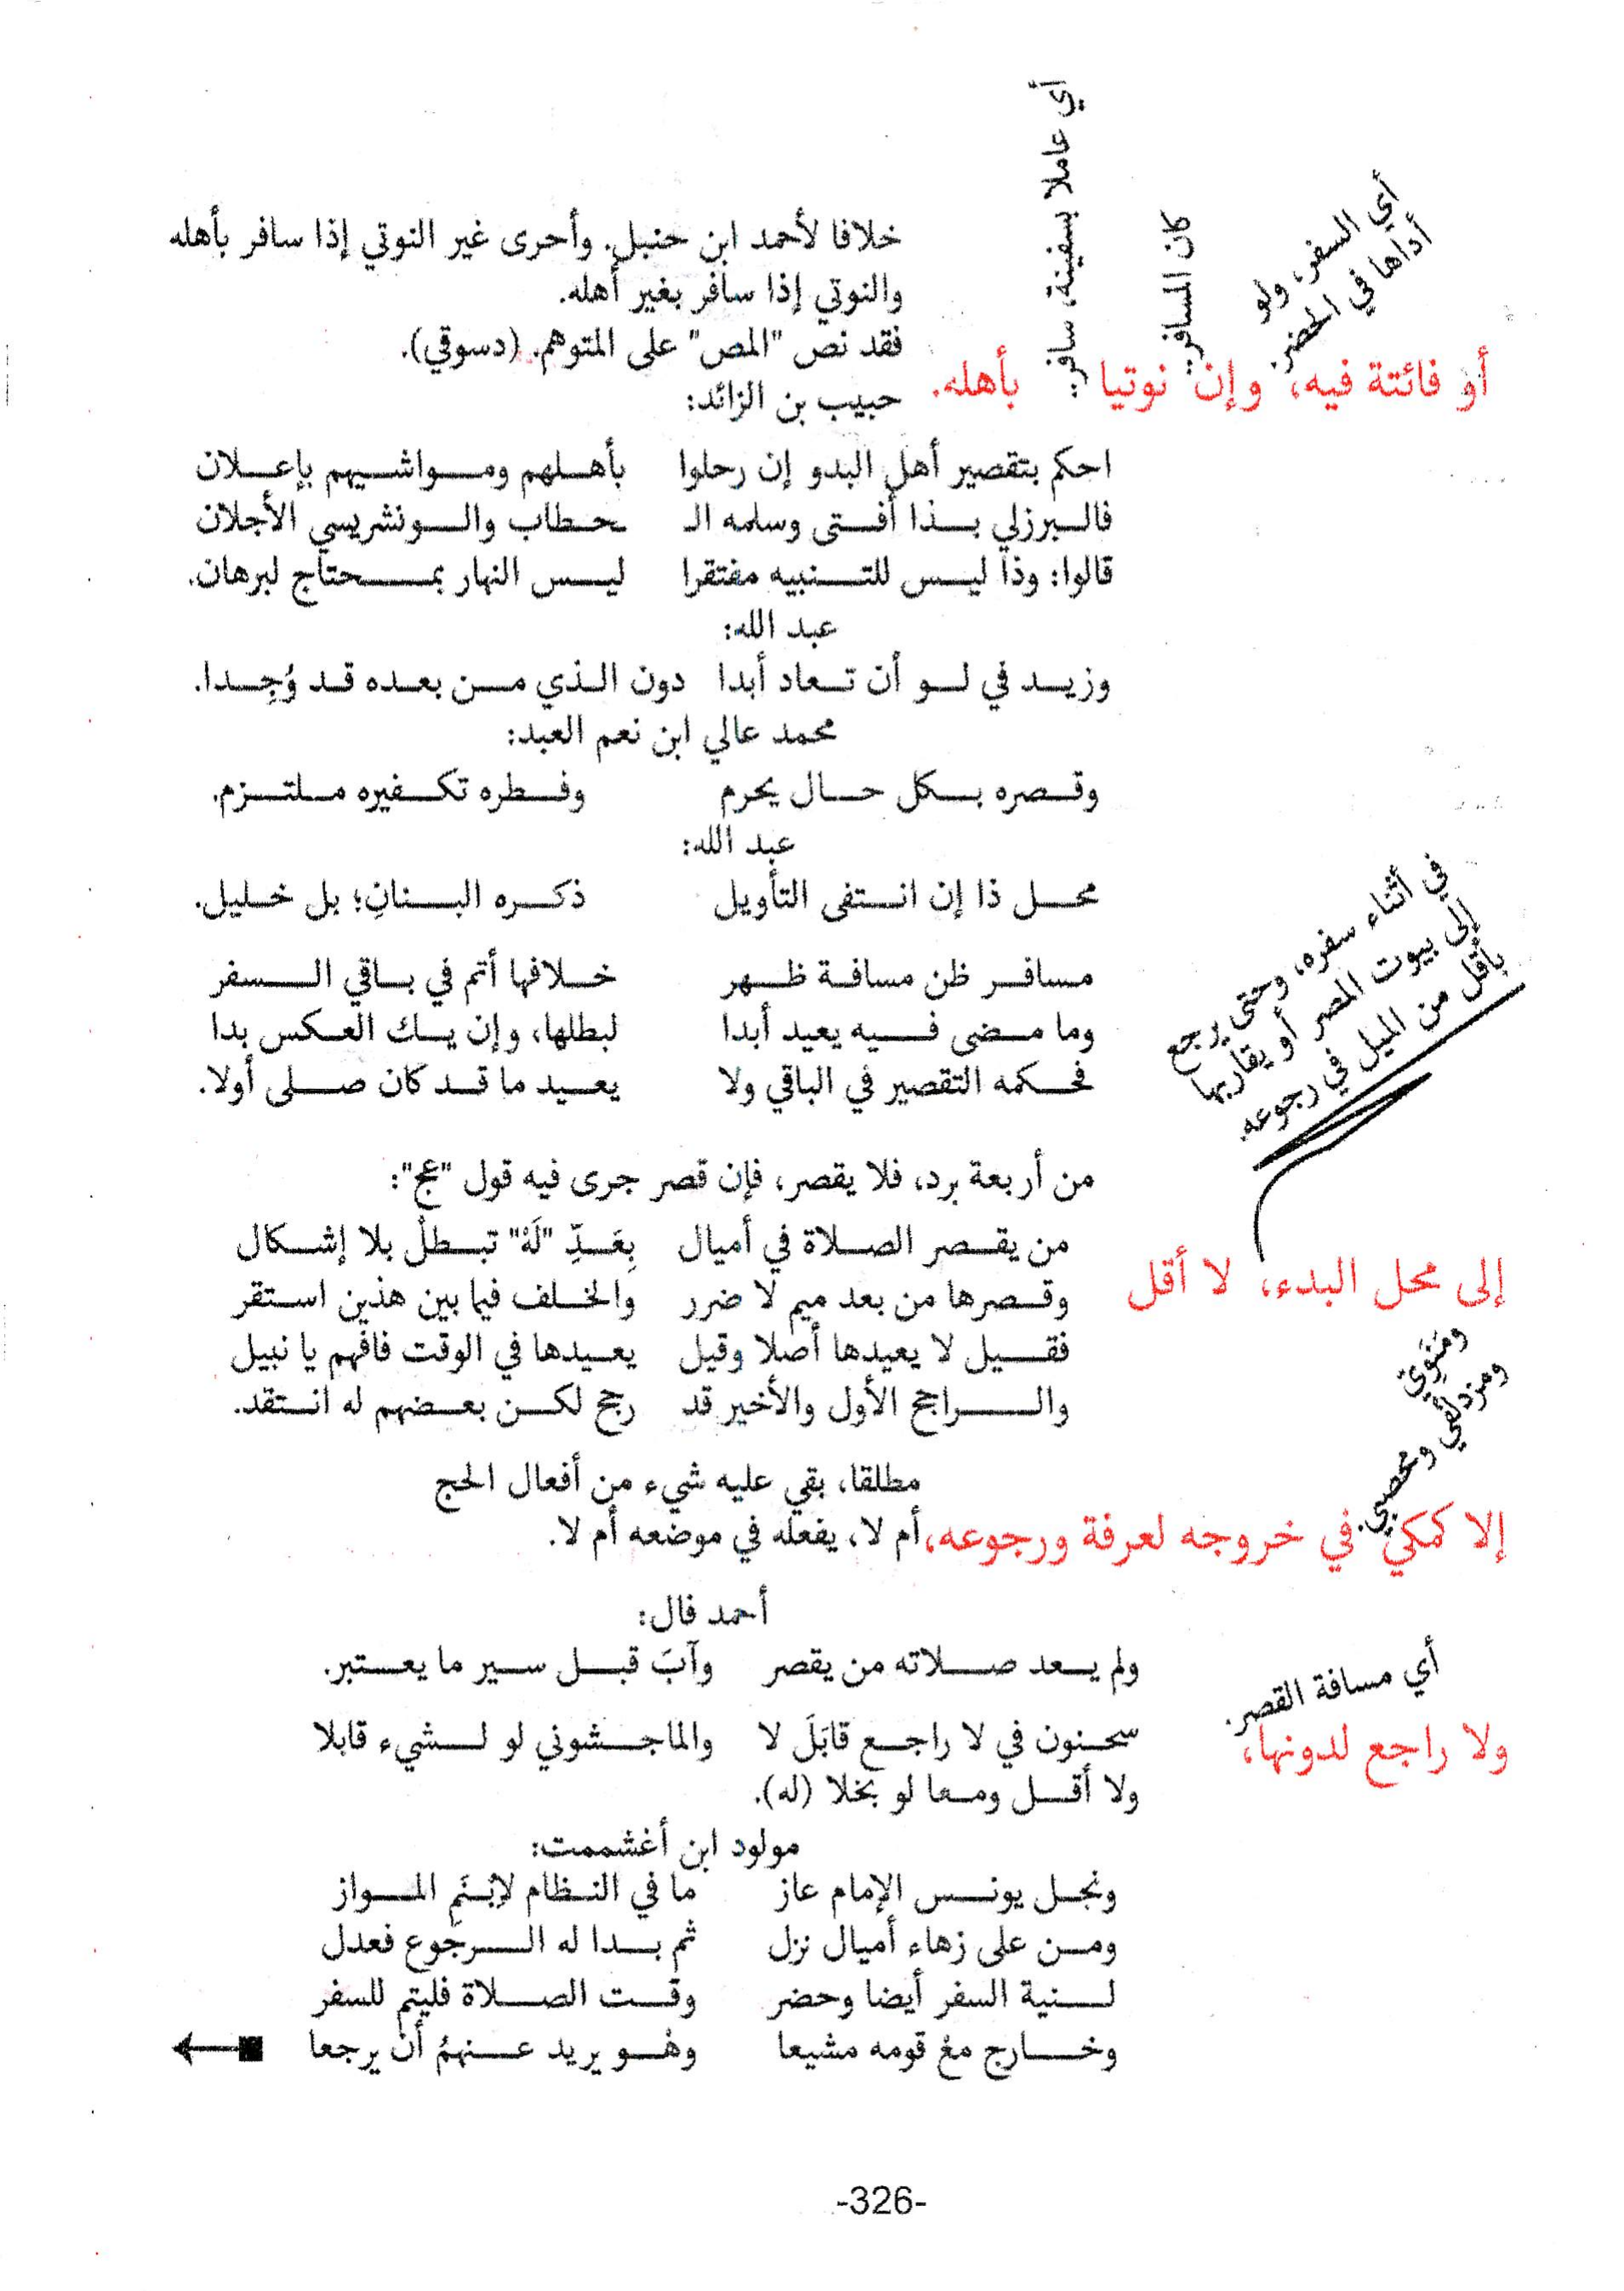 أي عاملا بسفينة، سافر..
كان المسافر..
أي السفر، ولو
أداها في الحضر.
خلافا لأحمد ابن حنبل. وأحرى غير النوتي إذا سافر بأهله
والنوتي إذا سافر بغير أهله.
فقد نص "المص" على المتوهم. (دسوقي).
أو فائتة فيه، وإن نوتيا بأهله.
حبيب بن الزائد:
احكم بتقصير أهل البدو إن رحلوا بأهلهم ومواشيهم بإعلان
فالبرزلي بذا أفتى وسلمه الـ ـحطاب والونشريسي الأجلان
قالوا: وذا ليس للتنبيه مفتقرا ليس النهار بمحتاج لبرهان.
عبد الله:
وزيد في لو أن تعاد أبدا دون الذي من بعده قد وُجِدا.
محمد عالي ابن نعم العبد:
وقصره بكل حال يحرم وفطره تكفيره ملتزم.
عبد الله:
محل ذا إن انتفى التأويل ذكره البنانِ؛ بل خليل.
في أثناء سفره، وحتى يرجع
إلى بيوت المصر أو يقاربها
بأقل من الميل في رجوعه.
مسافر ظن مسافة ظهر خلافها أتم في باقي السفر
وما مضى فيه يعيد أبدا لبطلها، وإن يك العكس بدا
فحكمه التقصير في الباقي ولا يعيد ما قد كان صلى أولا.
من أربعة برد، فلا يقصر، فإن قصر جرى فيه قول "عج":
من يقصر الصلاة في أميال بِعَدِّ "لَهْ" تبطلْ بلا إشكال
إلى محل البدء، لا أقل
وقصرها من بعد ميم لا ضرر والخلف فيما بين هذين استقر
فقيل لا يعيدها أصلا وقيل يعيدها في الوقت فافهم يا نبيل
والراجح الأول والأخير قد رجح لكن بعضهم له انتقد.
ومنوي
ومزدلفي ومحصبي.
مطلقا، بقي عليه شيء من أفعال الحج
إلا كمكي في خروجه لعرفة ورجوعه، أم لا، يفعله في موضعه أم لا.
أحمد فال:
ولم يعد صلاته من يقصر وآبَ قبل سير ما يعتبر.
أي مسافة القصر.
ولا راجع لدونها،
سحنون في لا راجع قابَلَ لا والماجشوني لو لشيء قابلا
ولا أقل ومعا لو بخلا (له).
مولود ابن أغشممت:
ونجل يونس الإمام عاز ما في النظام لاِبْنَمِ المواز
ومن على زهاء أميال نزل ثم بدا له الرجوع فعدل
لنية السفر أيضا وحضر وقت الصلاة فليتم للسفر
وخارج معْ قومه مشيعا وهْو يريد عنهمُ أن يرجعا
-326-